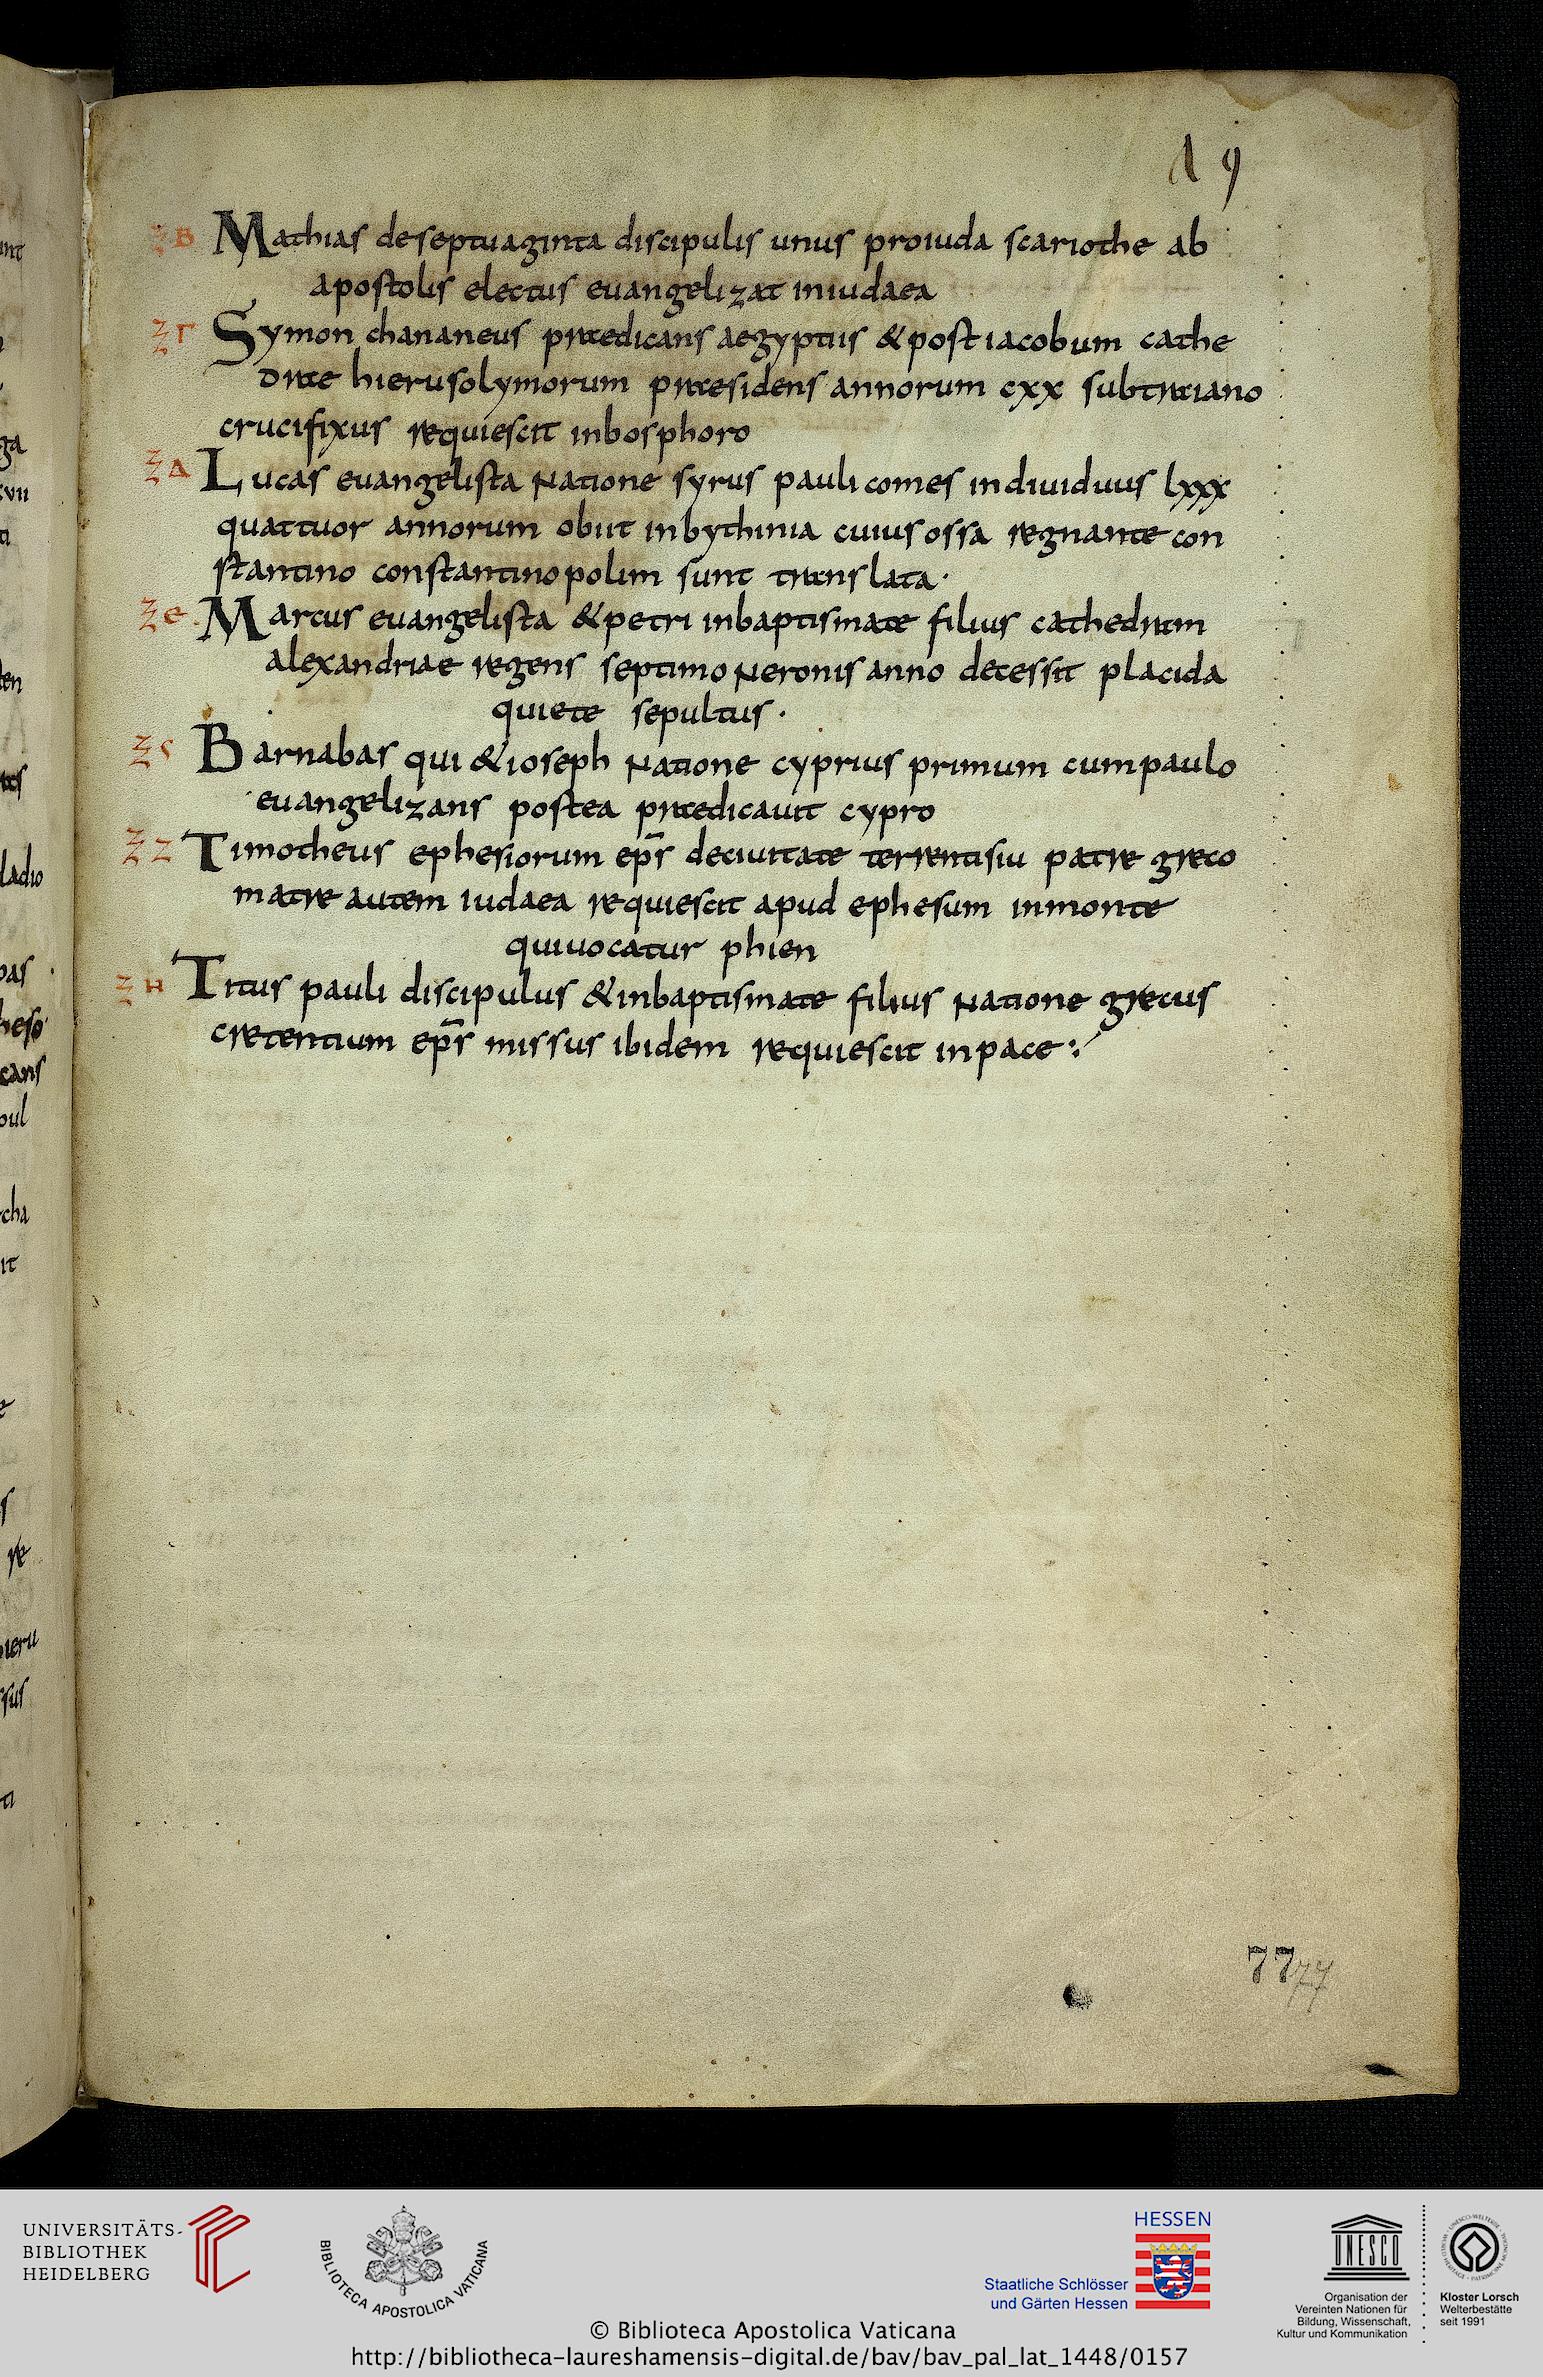 19
ξβ Mathias deseptuaginta discipulis unus proiuda scariothe ab
apostolis electus euangelizat iniudaea
ξγ Symon chananeus praedicans aegyptiis & post iacobum cathe
drae hierusolymorum praesidens annorum cxx subtraiano
crucifixus requiescit inbosphoro
ξδ Lucas euangelista natione syrus pauli comes indiuiduus lxxx
quattuor annorum obiit inbythinia cuius ossa regnante con
stantino constantinopolim sunt translata·
ξε Marcus euangelista & petri inbaptismate filius cathedram
alexandriae regens septimo neronis anno decessit placida
quiete sepultus·
ξς Barnabas qui & ioseph natione cyprius primum cumpaulo
euangelizans postea praedicauit cypro
ξζ Timotheus ephesiorum ep̅s deciuitate terrentisiu patre greco
matre autem iudaea requiescit apud ephesum inmonte
quiuocatur phien
ξη Titus pauli discipulus & inbaptismate filius natione grecus
cretentium ep̅s missus ibidem requiescit inpace
77 77
UNIVERSITÄTS-
BIBLIOTHEK
HEIDELBERG
BIBLIOTECA APOSTOLICA VATICANA
HESSEN
Staatliche Schlösser
und Gärten Hessen
UNESCO
Organisation der
Vereinten Nationen für
Bildung, Wissenschaft,
Kultur und Kommunikation
Kloster Lorsch
Welterbestätte
seit 1991
© Biblioteca Apostolica Vaticana
http://bibliotheca-laureshamensis-digital.de/bav/bav_pal_lat_1448/0157